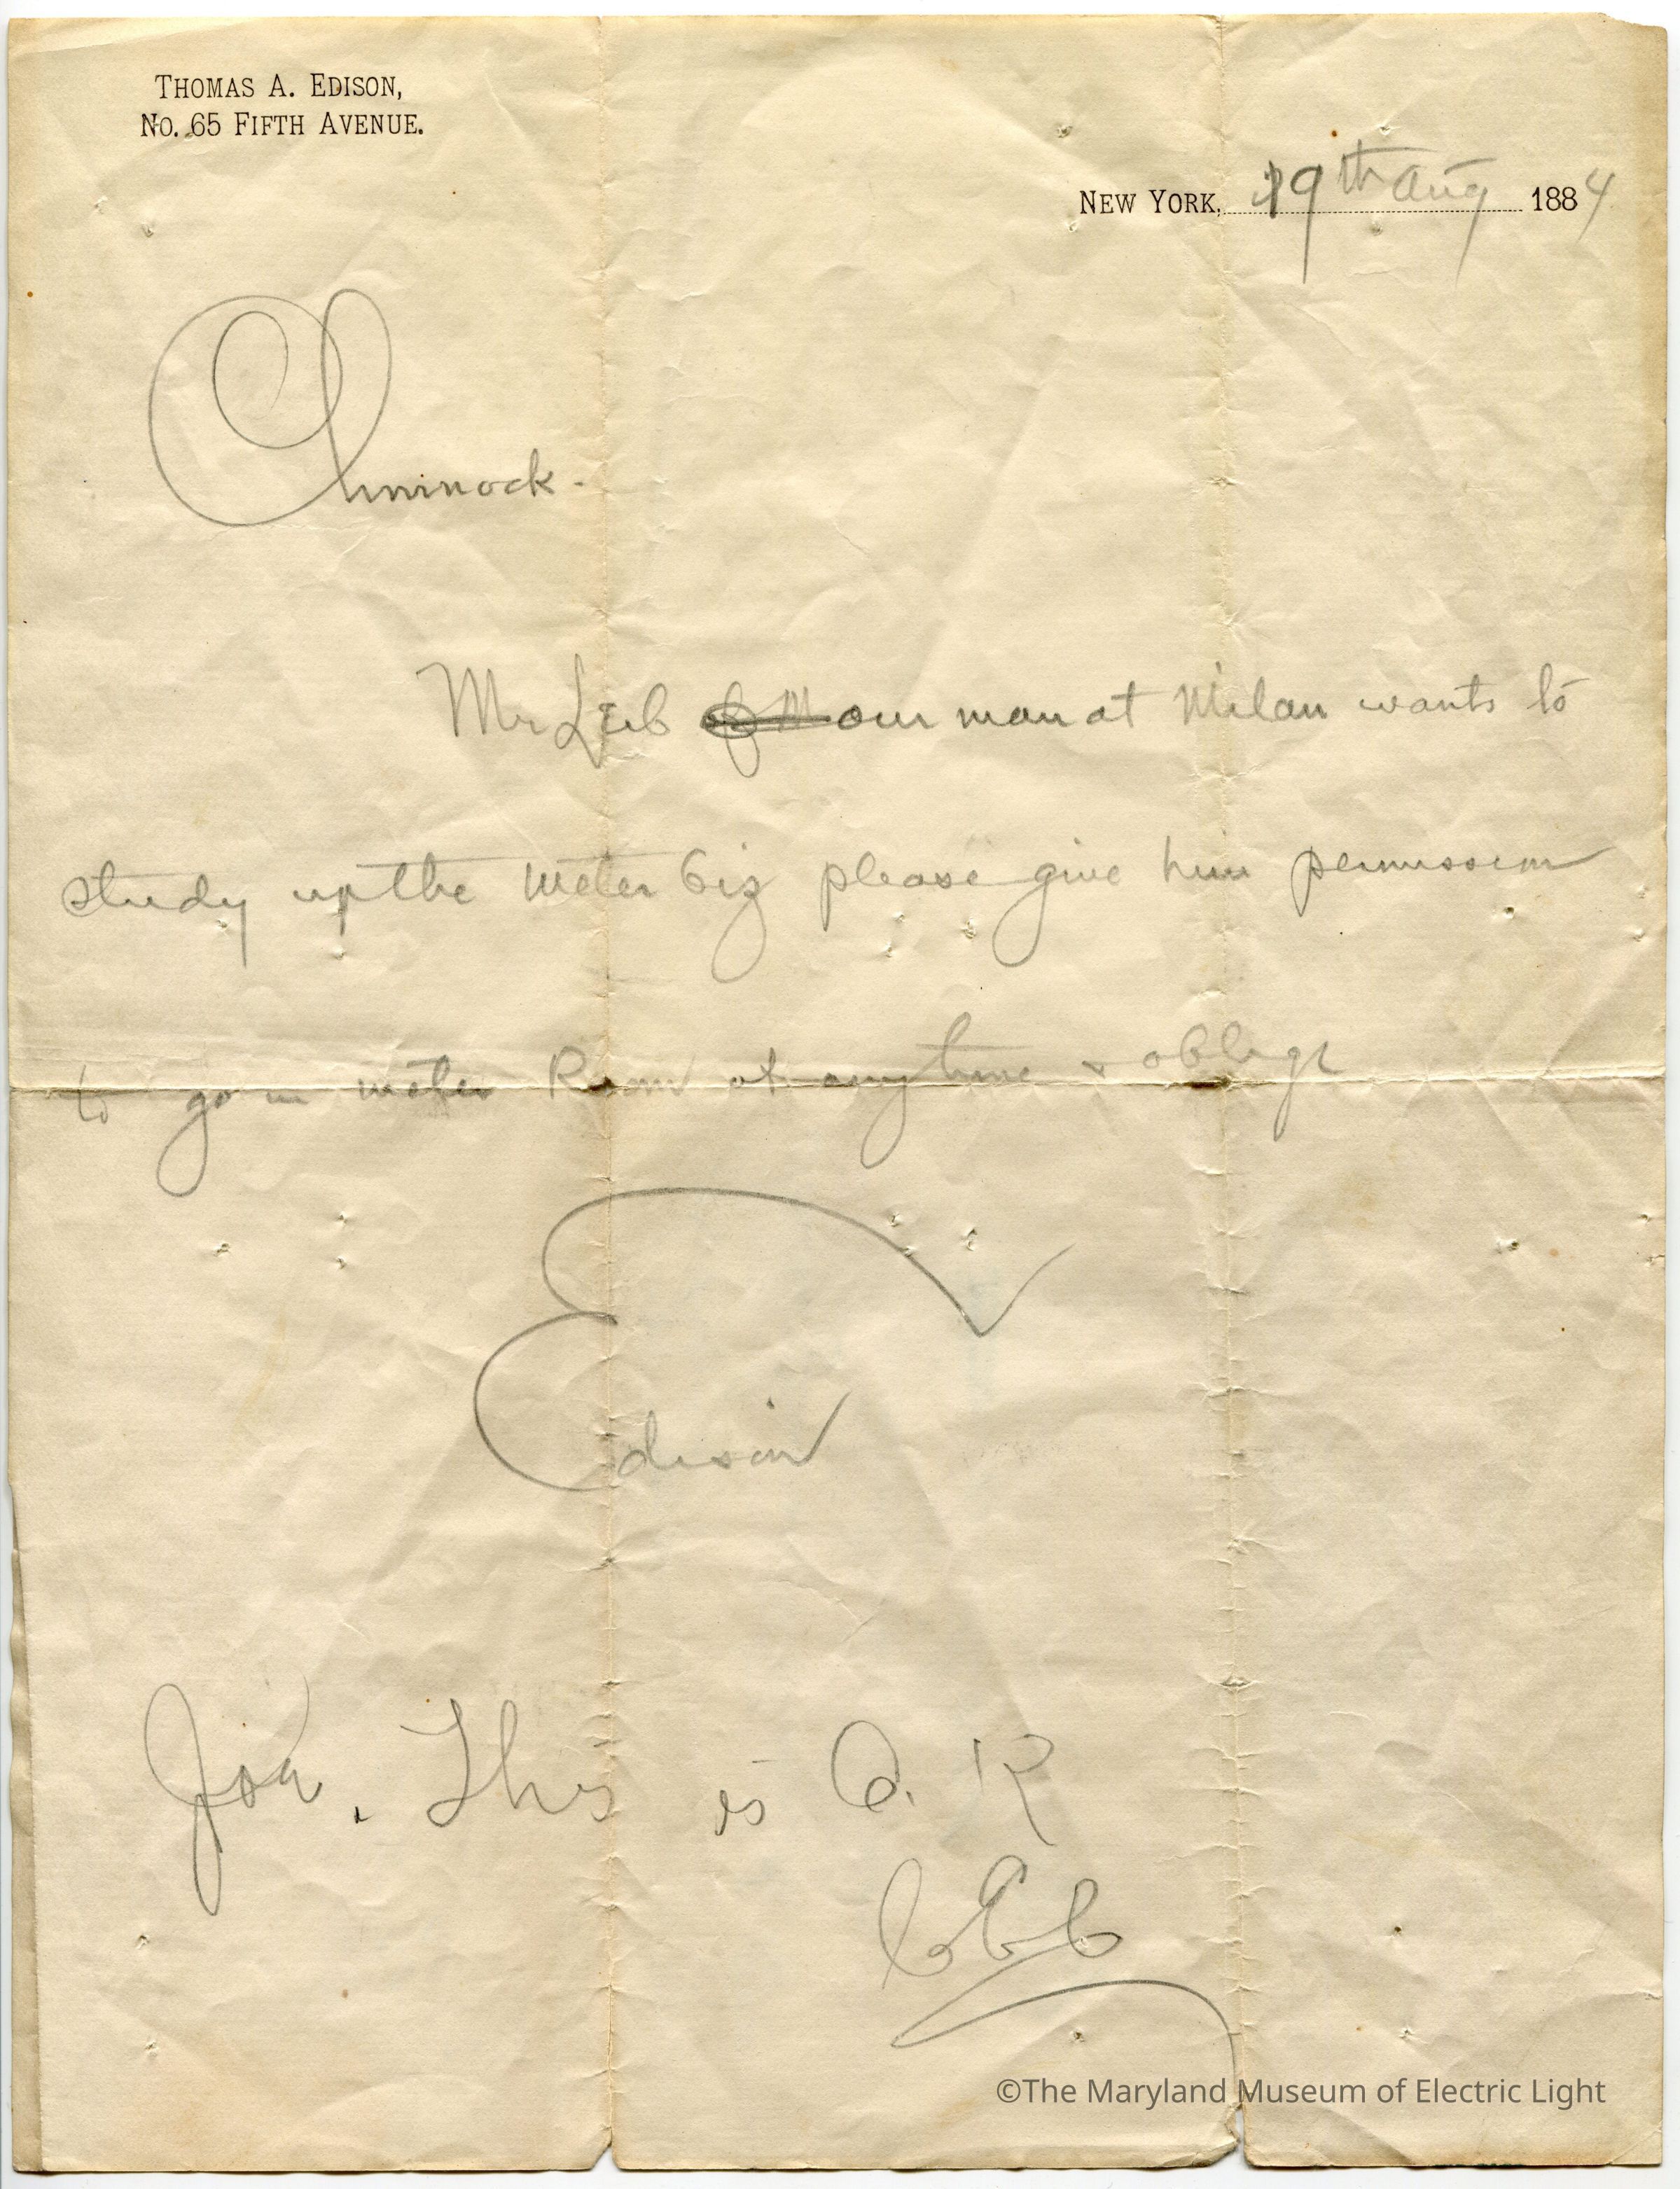 THOMAS A. EDISON,
No. 65 FIFTH AVENUE.
NEW YORK, 19th Aug 1884
Chinnock.
Mr Leib of M our man at Milan wants to
study up the meter biz please give him permission
to go in meter Room at any time & oblige
Edison
This is O. K
©The Maryland Museum of Electric Light